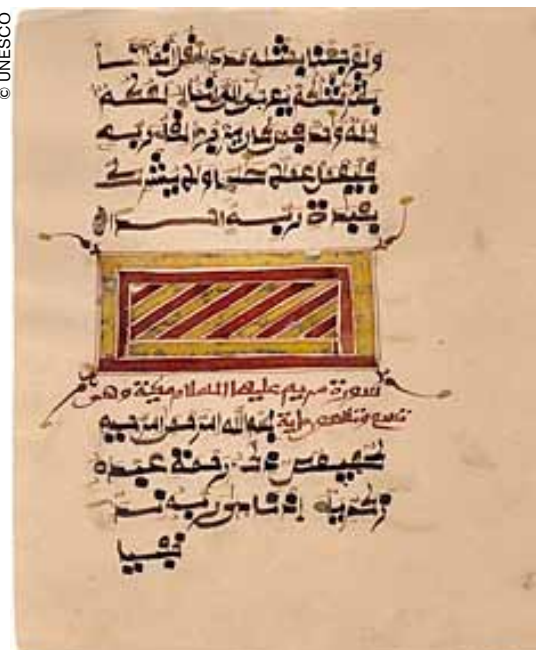 © UNESCO
ولو جئنا بمثله مددا قل انما انا
بشر مثلكم يوحى الي انما الهكم
اله وحد فمن كان يرجوا لقاء ربه
فليعمل عملا صلحا ولا يشرك
بعبدة ربه احدا
سورة مريم عليها السلام مكية وهي
تسع وتسعون ءاية بسم الله الرحمن الرحيم
كهيعص ذكر رحمة عبده
زكرياء اذ نادى ربه نداء
خفيا